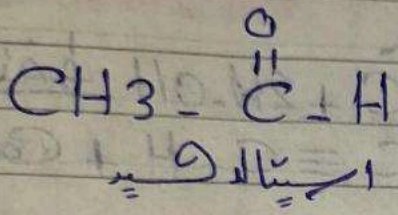 O
||
CH3 - C - H
اسيتالدهيد